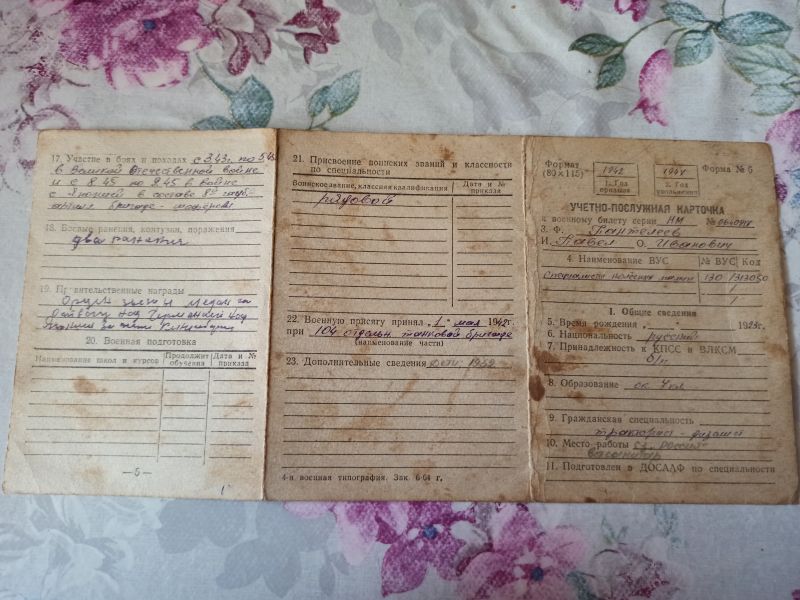 17. Участие в боях и походах с 3.43 г. по 5.45
в Великой Отечественной войне
и с 8.45 по 9.45 в войне
с Японией в составе 8й
бригаде - шофером
18. Боевые ранения, контузии, поражения
два ранения
19. Правительственные награды
медали за
победу над Германией над
Японией за взятие Кенигсберга
20. Военная подготовка
Наименование школ и курсов
Продолжит. обучения
Дата и № приказа
— 5 —
21. Присвоение воинских званий и классности
по специальности
Воинское звание, классная квалификация
Дата и № приказа
рядовой
22. Военную присягу принял „1" мая 1942 г.
при 104 отдельн. танковой бригаде
(наименование части)
23. Дополнительные сведения
4-я военная типография. Зак. 6-64 г.
Формат
(80×115)
1942
1. Год
призыва
2. Год
увольнения
Форма № 6
УЧЕТНО-ПОСЛУЖНАЯ КАРТОЧКА
к военному билету серии НМ №
3. Ф. Пантелеев
И. Павел О. Иванович
4. Наименование ВУС
№ ВУС
Код
130
1. Общие сведения
5. Время рождения 1923 г.
6. Национальность русский
7. Принадлежность к КПСС и ВЛКСМ
б/п
8. Образование 4 кл
9. Гражданская специальность
тракторист -
10. Место работы
11. Подготовлен в ДОСААФ по специальности